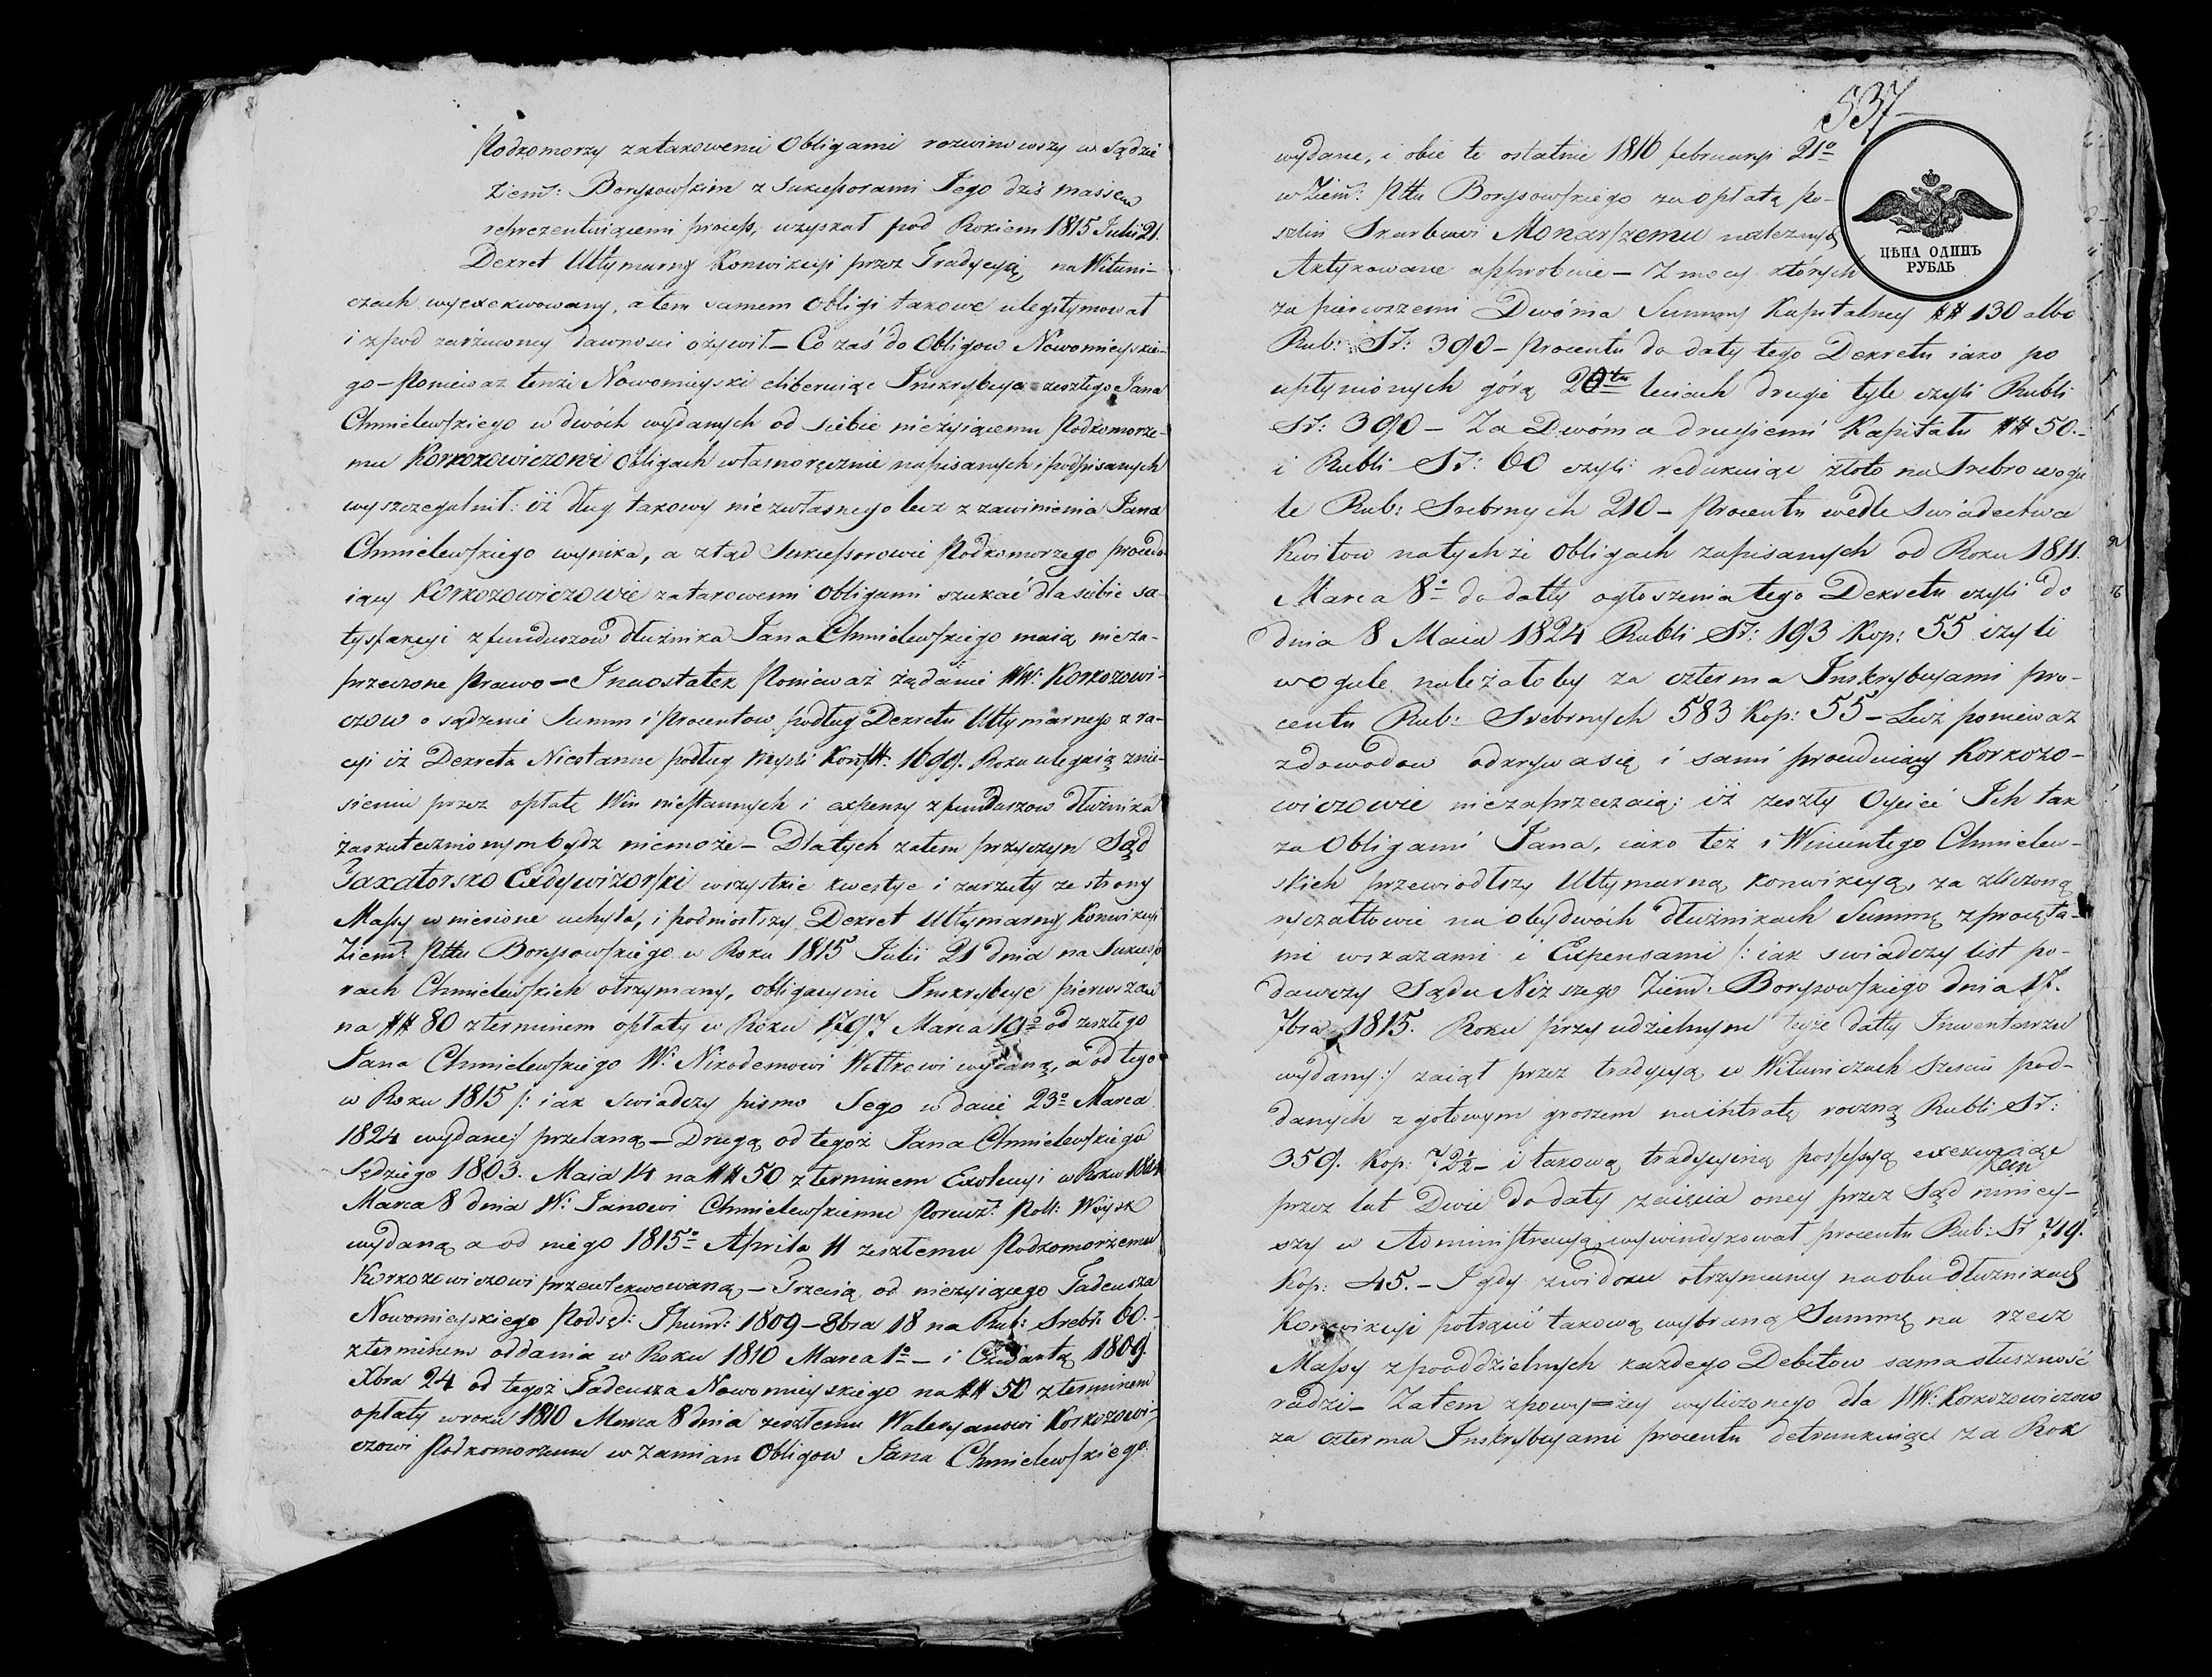 Podkomorzy zatakowemi Obligami rozwinowszy w Sądzie
Ziem̃: Borysowskim z Sukcessorami Jego dziś massem
reprezentuiącemi process, uzyskał pod Rokiem 1815 Julii 21.
Dekret Ultymarny Konwikcyi przez Tradycyią na Wituni-
czach wyexekwowany, a tem samem Obligi takowe ulegitymował
i zpod zarzucony dawności ożywił – Co zaś do Obligow Nowomieyskie-
go – Poniewaz tenże Nowomieyski eliberuiąc Inskrybcye zeszłego Jana
Chmielewskiego w dwóch wydanych od siebie nieżyiącemu Podkomorze-
mu Korkozowiczowi Obligach własnoręcznie napisanych i podpisanych
wyszczegulnił: iż dług takowy niezwłasnego lecz z zawinienia Jana
Chmielewskiego wynika, a ztąd Sukcessorowie Podkomorzego procedu-
iący Korkozowiczowie zatakowemi Obligami szukać dla siebie sa-
tysfakcyi z funduszow dłużnika Jana Chmielewskiego maią nieza-
przeczone Prawo – Inaostatek Poniewaz żądanie WW: Korkozowi-
czow o sądzenie Summ i Procentow podług Dekretu Ultymarnego z ra-
cyi iż Dekreta Niestanne podług myśli Konstt. 1699. Roku ulegaią znie-
sieniu przez opłatę Win niestannych i expensy z funduszow dłużnika
zaskutecznionym bydz niemoże – Dlatych zatem przyczyn Sąd
Taxatorsko Exdywizorski wszystkie kwestye i zarzuty ze strony
Massy wniesione uchyla, i podniosłszy Dekret Ultymarny Konwikcyi
Ziem̃: Pttu Borysowskiego w Roku 1815 Julii 21 dnia na Sukcesso
rach Chmielewskich otrzymany, obligacyine Inskrybcye pierwszą
na ## 80 z terminem opłaty w Roku 1797 Marca 19° od zeszłego
Jana Chmielewskiego W: Nikodemowi Wołkowi wydaną, a od tego
w Roku 1815 /: iak swiadczy pismo Jego w dacie 23° Marca
1824 wydane:/ przelaną – Drugą od tegoż Jana Chmielewskiego
Sędziego 1803. Maia 14 na ## 50 z terminem Exolucyi w Roku
Marca 8 dnia W: Janowi Chmielewskiemu Porucz: Pols: Woysk
wydaną a od niego 1815° Aprila 11 zeszłemu Podkomorzemu
Korkozowiczowi przewlekwowaną – Trzecią od nieżyiącego Tadeusza
Nowomieyskiego Podsęd: Ihum̃: 1809 – 8bra 18 na Rub: Srebr: 60. –
z terminem oddania w Roku 1810 Marca 1° – i Czwartą 1809.
Xbra 24 od tegoż Tadeusza Nowomieyskiego na ## 50 z terminem
opłaty w roku 1810 Marca 8 dnia zeszłemu Waleryanowi Korkozowi-
czowi Podkomorzemu w zamian Obligow Jana Chmielewskiego.
537
wydane, i obie te ostatnie 1816 februaryi 21°
w Ziem̃: Pttu Borysowskiego za opłatą Po-
szlin Skarbowi Monarszemu należnych
Aktykowane approbuie – Z mocy których
ЦѢНА ОДИНЪ
РУБЛЬ
za pierwszemi Dwóma Summy Kapitalney ## 130 albo
Rub: Sr: 390 – Procentu do daty tego Dekretu iako po
upłynionych górą 20tu leciach drugie tyle czyli Rubli
Sr: 390 – Za Dwóma drugiemi Kapitału ## 50. –
i Rubli Sr: 60 czyli redukuiąc złoto na Srebro wogu
le Rub: Srebrnych 210 – Procentu wedle Swiadectwa
Kwitow natychże Obligach zapisanych od Roku 1811.
Marca 8° do datty ogłoszenia tego Dekretu czyli do
dnia 8 Maia 1824 Rubli Sr: 193 Kop: 55 czyli
wogule należałoby za czterma Inskrybcyami pro-
centu Rub: Srebrnych 583 Kop: 55 – Lecz poniewaz
zdowodow odkrywa się i sami procuduiący Korkozo-
wiczowie niezaprzeczaią: iż zeszły Oyciec Ich tak
za Obligami Jana, iako też i Wincentego Chmielew-
skich przewiodłszy Ultymarną konwikcyą, za zliczoną
ryczałtowie na obydwóch dłużnikach Summę z procęta-
mi wskazami i Expensami /: iak swiadczy list po-
dawczy Sądu Niższego Ziem̃: Borysowskiego dnia 17.
7bra 1815. Roku przy udzielnym teyże datty Inwentarzu
wydany:/ zaiął przez tradycyą w Wituniczach Sześciu pod-
danych z gotowym groszem na intratę roczną Rubli Sr:
359. Kop: 72½ – i takową tradycyiną possessyą exekwuiąc
przez lat Dwie do daty zaięcia oney przez Sąd niniey-
szy w Administracyą wywindykował procentu Rub: Sr 719.
Kop: 45. – I gdy zwidoku otrzymaney na obu dłużnikach
Konwikcyi potrącić takową wybraną Summę na rzecz
Massy z pooddzielnych każdego Debitow sama słuszność
radzi – Zatem zpowy=żey wyliczonego dla WW: Korkozowiczow
za czterma Inskrybcyami procentu detrunkuiąc za Rok